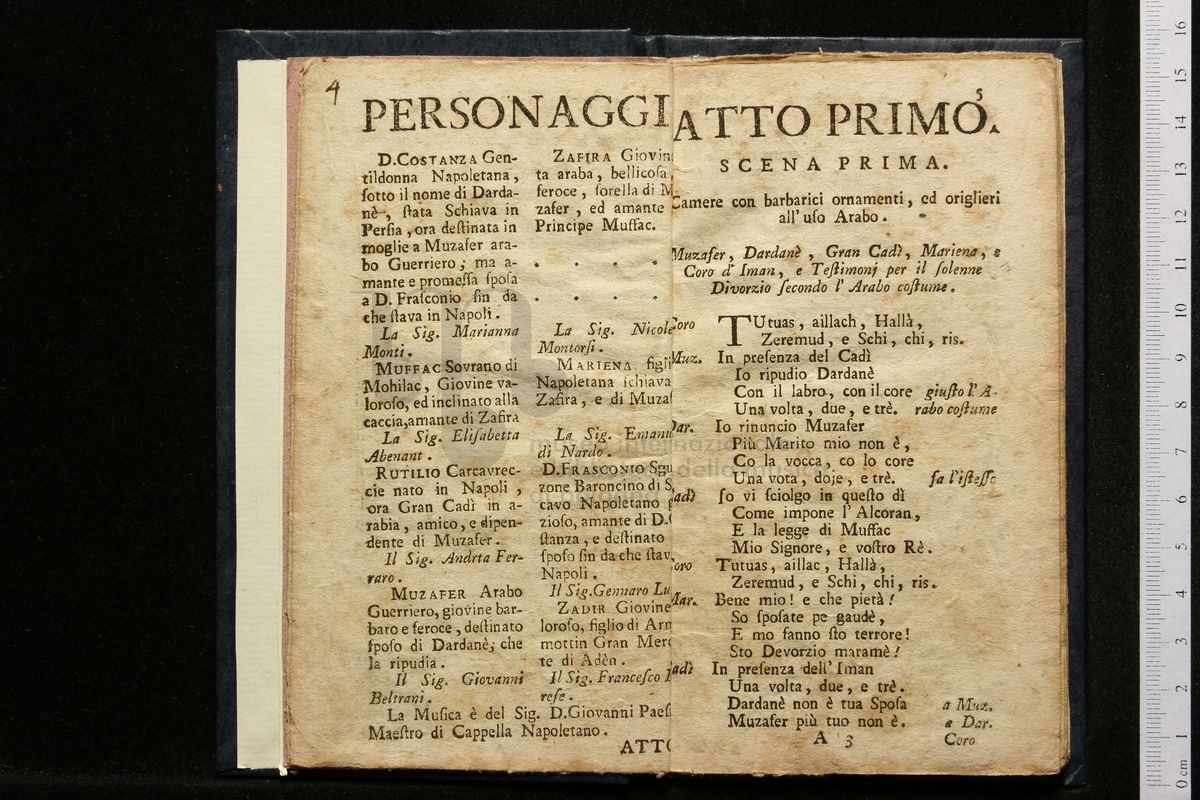 4
PERSONAGGI
D.COSTANZA Gen-
tildonna Napoletana,
ſotto il nome di Darda-
nè, ſtata Schiava in
Perſia, ora deſtinata in
moglie a Muzafer ara-
bo Guerriero; ma a-
mante e promeſſa ſpoſa
a D. Fraſconio fin da
che ſtava in Napoli.
La Sig. Marianna
Monti.
MUFFAC Sovrano di
Mohilac, Giovine va-
loroſo, ed inclinato alla
caccia,amante di Zafira
La Sig. Eliſabetta
Abenant.
RUTILIO Carcavrec-
cie nato in Napoli,
ora Gran Cadì in a-
rabia, amico, e dipen-
dente di Muzafer.
Il Sig. Andrea Fer-
raro.
MUZAFER Arabo
Guerriero, giovine bar-
baro e feroce, deſtinato
ſpoſo di Dardanè, che
la ripudia.
Il Sig. Giovanni
Beltrani.
ZAFIRA Giovin
ta araba, bellicoſa,
feroce, ſorella di M
zafer, ed amante
Principe Muffac.
. . . .
. . . .
La Sig. Nicole
Montorſi.
MARIENA figli
Napoletana ſchiava
Zafira, e di Muzaf
La Sig. Emanu
di Nardo.
D.FRASCONIO Sgu
zone Baroncino di S.
cavo Napoletano g
zioſo, amante di D.C
ſtanza, e deſtinato
ſpoſo fin da che ſtav
Napoli.
Il Sig.Gennaro Lu
ZADIR Giovine
loroſo, figlio di Arm
mottin Gran Merc
te di Adèn.
Il Sig. Franceſco
reſe.
La Muſica è del Sig. D.Giovanni Paeſ
Maeſtro di Cappella Napoletano.
ATTO
5
ATTO PRIMO.
SCENA PRIMA.
Camere con barbarici ornamenti, ed origlieri
all' uſo Arabo.
Muzafer, Dardanè, Gran Cadì, Mariena, e
Coro d' Iman, e Teſtimonj per il ſolenne
Divorzio ſecondo l' Arabo coſtume.
Coro TUtuas, aillach, Hallà,
Zeremud, e Schi, chi, ris.
Muz. In preſenza del Cadì
Io ripudio Dardanè
Con il labro, con il core giuſto l' A-
Una volta, due, e trè. rabo coſtume
Dar. Io rinuncio Muzafer
Più Marito mio non è,
Co la vocca, co lo core
Una vota, doje, e trè. fa l'iſteſſo
Cadì Io vi ſciolgo in queſto dì
Come impone l' Alcoran,
E la legge di Muffac
Mio Signore, e voſtro Rè.
Coro Tutuas, aillac, Hallà,
Zeremud, e Schi, chi, ris.
Mar. Bene mio! e che pietà!
So ſpoſate pe gaudè,
E mo fanno ſto terrore!
Sto Devorzio maramè!
Cadì In preſenza dell' Iman
Una volta, due, e trè.
Dardanè non è tua Spoſa a Muz.
Muzafer più tuo non è. a Dar.
A 3 Coro
16
15
14
13
12
11
10
9
8
7
6
5
4
3
2
1
0 cm